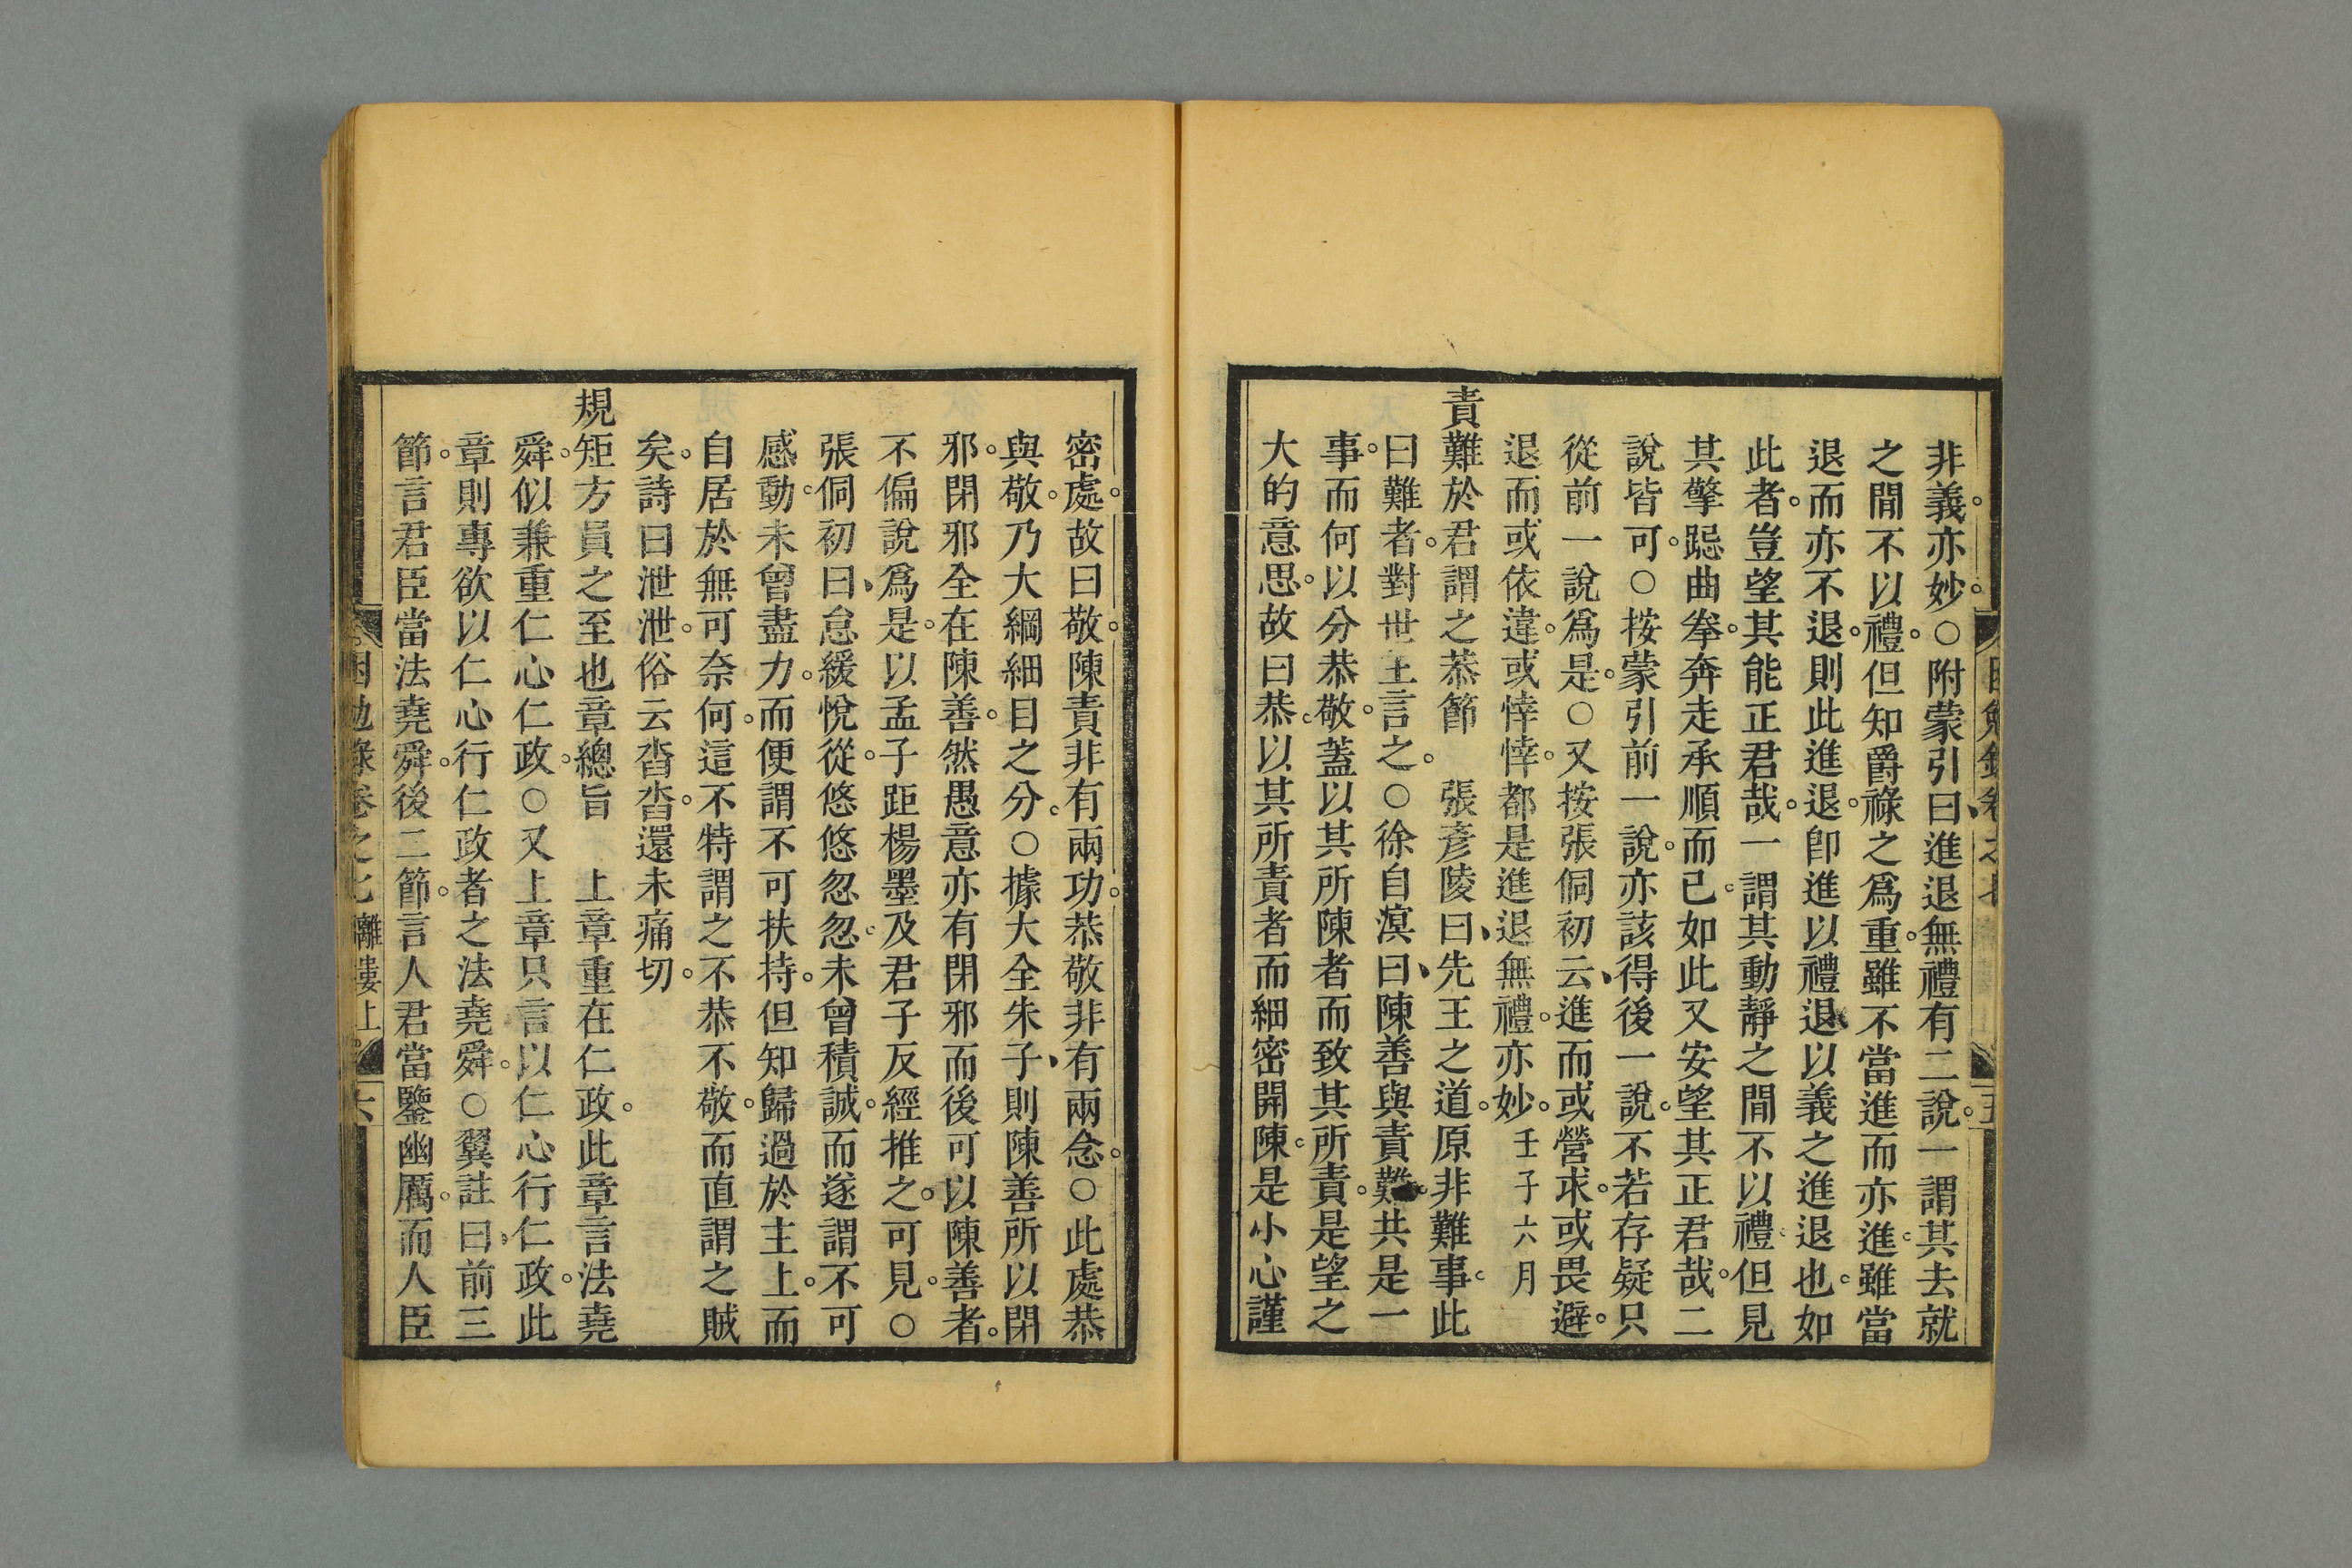 非義。亦妙。○附蒙引曰、進退無禮有二說。一謂其去就
之間不以禮。但知爵祿之爲重。雖不當進而亦進。雖當
退而亦不退。則此進退。卽進以禮退以義之進退也。如
此者。豈望其能正君哉。一謂其動靜之間不以禮。但見
其擎跽曲拳。奔走承順而已。如此又安望其正君哉。二
說皆可。○按蒙引前一說。亦該得後一說。不若存疑只
從前一說爲是。○又按張侗初云、進而或營求。或畏避。
退而或依違。或悻悻。都是進退無禮。亦妙。壬子六月
責難於君謂之恭節　張彥陵曰、先王之道。原非難事。此
曰難者。對世主言之。○徐自溟曰、陳善與責難。共是一
事。而何以分恭敬。蓋以其所陳者而致其所責。是望之
大的意思。故曰恭。以其所責者而細密開陳。是小心謹
密處。故曰敬。陳責非有兩功。恭敬非有兩念。○此處恭
與敬。乃大綱細目之分。○據大全朱子、則陳善所以閉
邪。閉邪全在陳善。然愚意亦有閉邪而後可以陳善者。
不偏說爲是。以孟子距楊墨及君子反經推之。可見。○
張侗初曰、怠緩悅從。悠悠忽忽。未曾積誠。而遂謂不可
感動。未曾盡力。而便謂不可扶持。但知歸過於主上。而
自居於無可奈何。這不特謂之不恭不敬。而直謂之賊
矣。詩曰泄泄。俗云沓沓。還未痛切。
規矩方員之至也章總旨　上章重在仁政。此章言法堯
舜。似兼重仁心仁政。○又上章只言以仁心行仁政。此
章則專欲以仁心行仁政者之法堯舜。○翼註曰、前三
節。言君臣當法堯舜。後二節。言人君當鑒幽厲。而人臣
困勉錄卷之七　離婁上　六